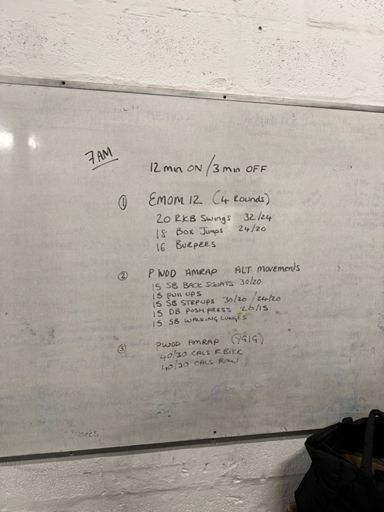 7AM
12 min ON / 3 min OFF
① EMOM 12 (4 Rounds)
20 RKB Swings 32/24
18 Box Jumps 24/20
16 Burpees
② PWOD AMRAP ALT Movements
15 SB BACK SQUATS 30/20
15 PULL UPS
15 SB STEP UPS 30/20 / 24/20
15 DB PUSH PRESS 20/15
15 SB WALKING LUNGES
③ PWOD AMRAP (YGIG)
40/30 CALS F.BIKE
40/30 CALS ROW